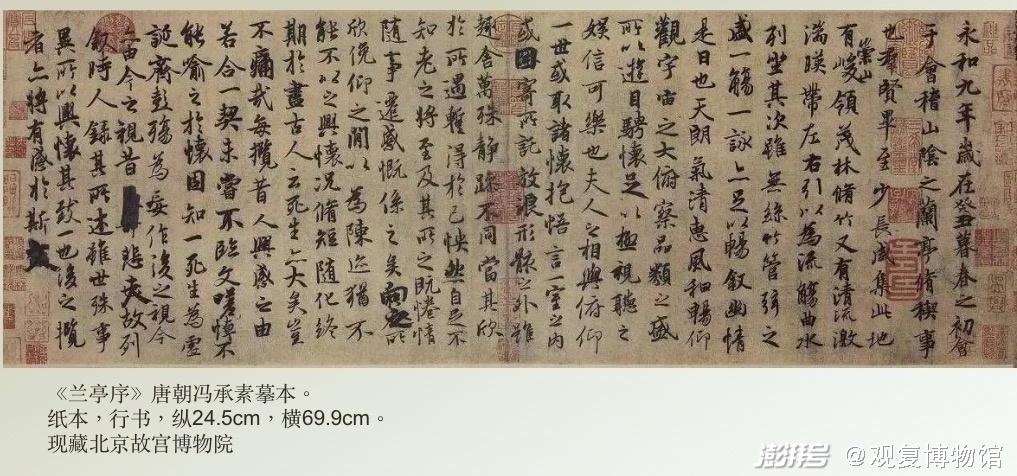 永和九年歲在癸丑暮春之初會
于會稽山陰之蘭亭脩稧事
也羣賢畢至少長咸集此地
有崇山峻領茂林脩竹又有清流激
湍暎帶左右引以為流觴曲水
列坐其次雖無絲竹管弦之
盛一觴一詠亦足以暢叙幽情
是日也天朗氣清惠風和暢仰
觀宇宙之大俯察品類之盛
所以遊目騁懷足以極視聽之
娛信可樂也夫人之相與俯仰
一世或取諸懷抱悟言一室之內
或因寄所託放浪形骸之外雖
趣舍萬殊靜躁不同當其欣
於所遇暫得於己怏然自足不
知老之將至及其所之既惓情
隨事遷感慨係之矣向之所
欣俛仰之閒以為陳迹猶不
能不以之興懷況脩短隨化終
期於盡古人云死生亦大矣豈
不痛哉每攬昔人興感之由
若合一契未嘗不臨文嗟悼不
能喻之於懷固知一死生為虛
誕齊彭殤為妄作後之視今
亦由今之視昔悲夫故列
叙時人錄其所述雖世殊事
異所以興懷其致一也後之攬
者亦將有感於斯文
《兰亭序》唐朝冯承素摹本。
纸本，行书，纵24.5cm，横69.9cm。
现藏北京故宫博物院
澎湃号 @观复博物馆